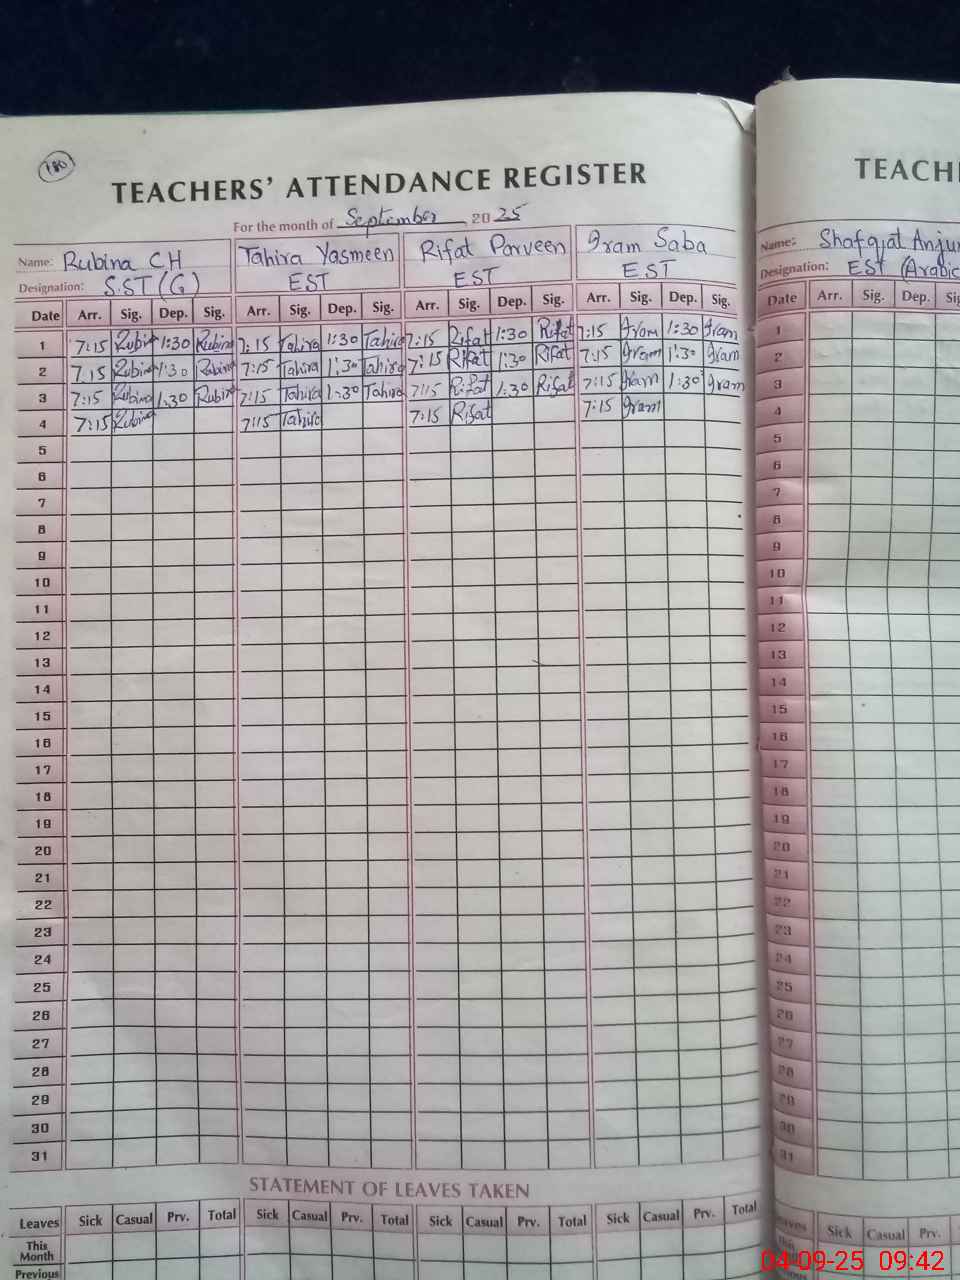 180
TEACHERS' ATTENDANCE REGISTER
For the month of September 2025
Name: Rubina CH Tahira Yasmeen Rifat Parveen Iram Saba
Designation: S.ST (G) EST EST E.ST
Date Arr. Sig. Dep. Sig. Arr. Sig. Dep. Sig. Arr. Sig. Dep. Sig. Arr. Sig. Dep. Sig.
1 7:15 Rubina 1:30 Rubina 7:15 Tahira 1:30 Tahira 7:15 Rifat 1:30 Rifat 7:15 Iram 1:30 Iram
2 7:15 Rubina 1:30 Rubina 7:15 Tahira 1:30 Tahira 7:15 Rifat 1:30 Rifat 7:15 Iram 1:30 Iram
3 7:15 Rubina 1:30 Rubina 7:15 Tahira 1:30 Tahira 7:15 Rifat 1:30 Rifat 7:15 Iram 1:30 Iram
4 7:15 Rubina 7:15 Tahira 7:15 Rifat 7:15 Iram
5
6
7
8
9
10
11
12
13
14
15
16
17
18
19
20
21
22
23
24
25
26
27
28
29
30
31
STATEMENT OF LEAVES TAKEN
Leaves Sick Casual Prv. Total Sick Casual Prv. Total Sick Casual Prv. Total Sick Casual Prv. Total
This
Month
Previous
TEACH
Name: Shafqat Anju
Designation: EST (Arabic
Date Arr. Sig. Dep. Si
1
2
3
4
5
6
7
8
9
10
11
12
13
14
15
16
17
18
19
20
21
22
23
24
25
26
27
28
29
30
31
Leaves Sick Casual Prv.
04-09-25 09:42